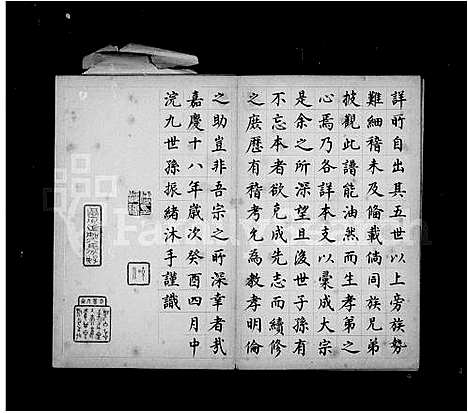 詳所自出其五世以上旁族勢
難細稽未及俻載倘同族兄弟
披觀此譜能油然而生孝弟之
心焉乃各詳本支以彙成大宗
是余之所深望且後世子孫有
不忘本者欲克成先志而續修
之庶歷有稽考允為教孝明倫
之助豈非吾宗之所深幸者哉
嘉慶十八年歲次癸酉四月中
浣九世孫振緒沐手謹識